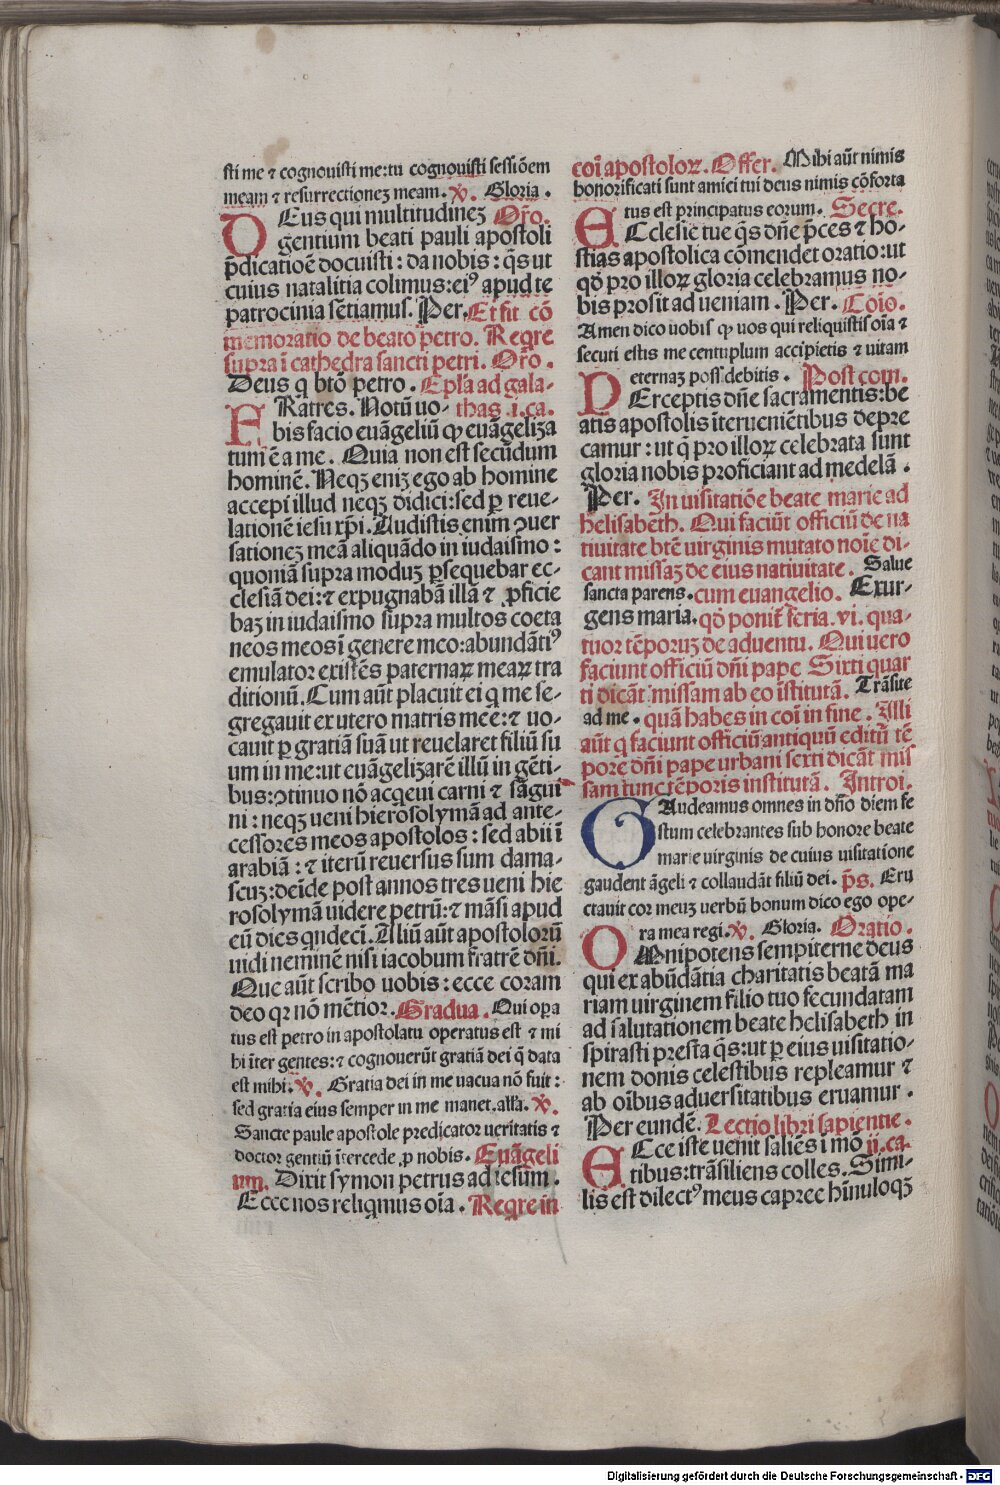 sti me ⁊ cognouisti me:tu cognouisti sessiõem
meam ⁊ resurrectionez meam. ℣. Gloria.
DEus qui multitudinez Or̃o.
gentium beati pauli apostoli
p̃dicatiõe docuisti: da nobis: q̃s ut
cuius natalitia colimus:eiꝰ apud te
patrocinia sẽtiamus. Per. Et fit cõ
memoratio de beato petro. Reqre
supra ĩ cathedra sancti petri. Or̃o.
Deus q btõ petro. Epl̃a ad gala-
FRatres. Notũ uo- thas .i.ca.
bis facio euãgeliũ ꝙ euãgeliza
tum ẽ a me. Quia non est secũdum
hominẽ. Neqꝫ eniꝫ ego ab homine
accepi illud neqꝫ didici:sed ꝑ reue-
lationẽ iesu xp̃i. Audistis enim ↄuer
sationeꝫ meã aliquãdo in iudaismo:
quoniã supra moduꝫ ꝑsequebar ec-
clesiã dei:⁊ expugnabã illã ⁊ ꝓficie
baꝫ in iudaismo supra multos coeta
neos meos ĩ genere meo:abundãtiꝰ
emulator existẽs paternaꝝ meaꝝ tra
ditionũ. Cum aũt placuit ei q me se-
gregauit ex utero matris mee:⁊ uo-
cauit ꝑ gratiã suã ut reuelaret filiũ su
um in me:ut euãgelizarẽ illũ in gẽti-
bus:ↄtinuo nõ acqeui carni ⁊ sãgui
ni: neqꝫ ueni hierosolymã ad ante-
cessores meos apostolos: sed abii ĩ
arabiã: ⁊ iterũ reuersus sum dama-
scuꝫ:deĩde post annos tres ueni hie
rosolymã uidere petrũ:⁊ mãsi apud
eũ dies qndecĩ. Aliũ aũt apostolorũ
uidi neminẽ nisi iacobum fratrẽ dñi.
Que aũt scribo uobis: ecce coram
deo qr nõ mẽtior. Gradua. Qui opa
tus est petro in apostolatu operatus est ⁊ mi
hi ĩter gentes:⁊ cognouerũt gratiã dei q̃ data
est mihi. ℣. Gratia dei in me uacua nõ fuit:
sed gratia eius semper in me manet.all̃a. ℣.
Sancte paule apostole predicator ueritatis ⁊
doctor gentiũ ĩtercede ꝓ nobis. Euãgeli
um. Dixit symon petrus ad iesum.
Ecce nos reliqmus oĩa. Reqre in
coĩ apostoloꝝ. Offer. Mihi aũt nimis
honorificati sunt amici tui deus nimis cõforta
tus est principatus eorum. Secre.
ECclesie tue q̃s dñe p̃ces ⁊ ho-
stias apostolica cõmendet oratio:ut
qd̃ pro illoꝝ gloria celebramus no-
bis prosit ad ueniam. Per. Coĩo.
Amen dico uobis ꝙ uos qui reliquistis oĩa ⁊
secuti estis me centuplum accipietis ⁊ uitam
eternaꝫ possidebitis. Post com.
PErceptis dñe sacramentis:be
atis apostolis ĩterueniẽtibus depre
camur: ut q̃ pro illoꝝ celebrata sunt
gloria nobis proficiant ad medelã.
Per. In uisitatiõe beate marie ad
helisabeth. Qui faciũt officiũ de na
tiuitate btẽ uirginis mutato noĩe di-
cant missaꝫ de eius natiuitate. Salue
sancta parens. cum euangelio. Exur-
gens maria. qd̃ ponit̃ feria .vi. qua-
tuor tẽporuꝫ de aduentu. Qui uero
faciunt officiũ dñi pape Sixti quar
ti dicãt missam ab eo ĩstitutã. Trãsite
ad me. quã habes in coĩ in fine. Illi
aũt q faciunt officiũ antiquũ editũ tẽ
pore dñi pape urbani sexti dicãt mis
sam tunc tẽporis institutã. Introi.
GAudeamus omnes in dño diem fe
stum celebrantes sub honore beate
marie uirginis de cuius uisitatione
gaudent ãgeli ⁊ collaudãt filiũ dei. p̃s. Eru
ctauit cor meuꝫ uerbũ bonum dico ego ope-
ra mea regi. ℣. Gloria. Oratio.
OMnipotens sempiterne deus
qui ex abũdãtia charitatis beatã ma
riam uirginem filio tuo fecundatam
ad salutationem beate helisabeth in
spirasti presta q̃s:ut ꝑ eius uisitatio-
nem donis celestibus repleamur ⁊
ab oĩbus aduersitatibus eruamur.
Per eundẽ. Lectio libri sapientie.
ECce iste uenit saliẽs i mõ ii.ca.
tibus:trãsiliens colles. Simi-
lis est dilectꝰ meus capree hĩnuloqꝫ
Digitalisierung gefördert durch die Deutsche Forschungsgemeinschaft - DFG